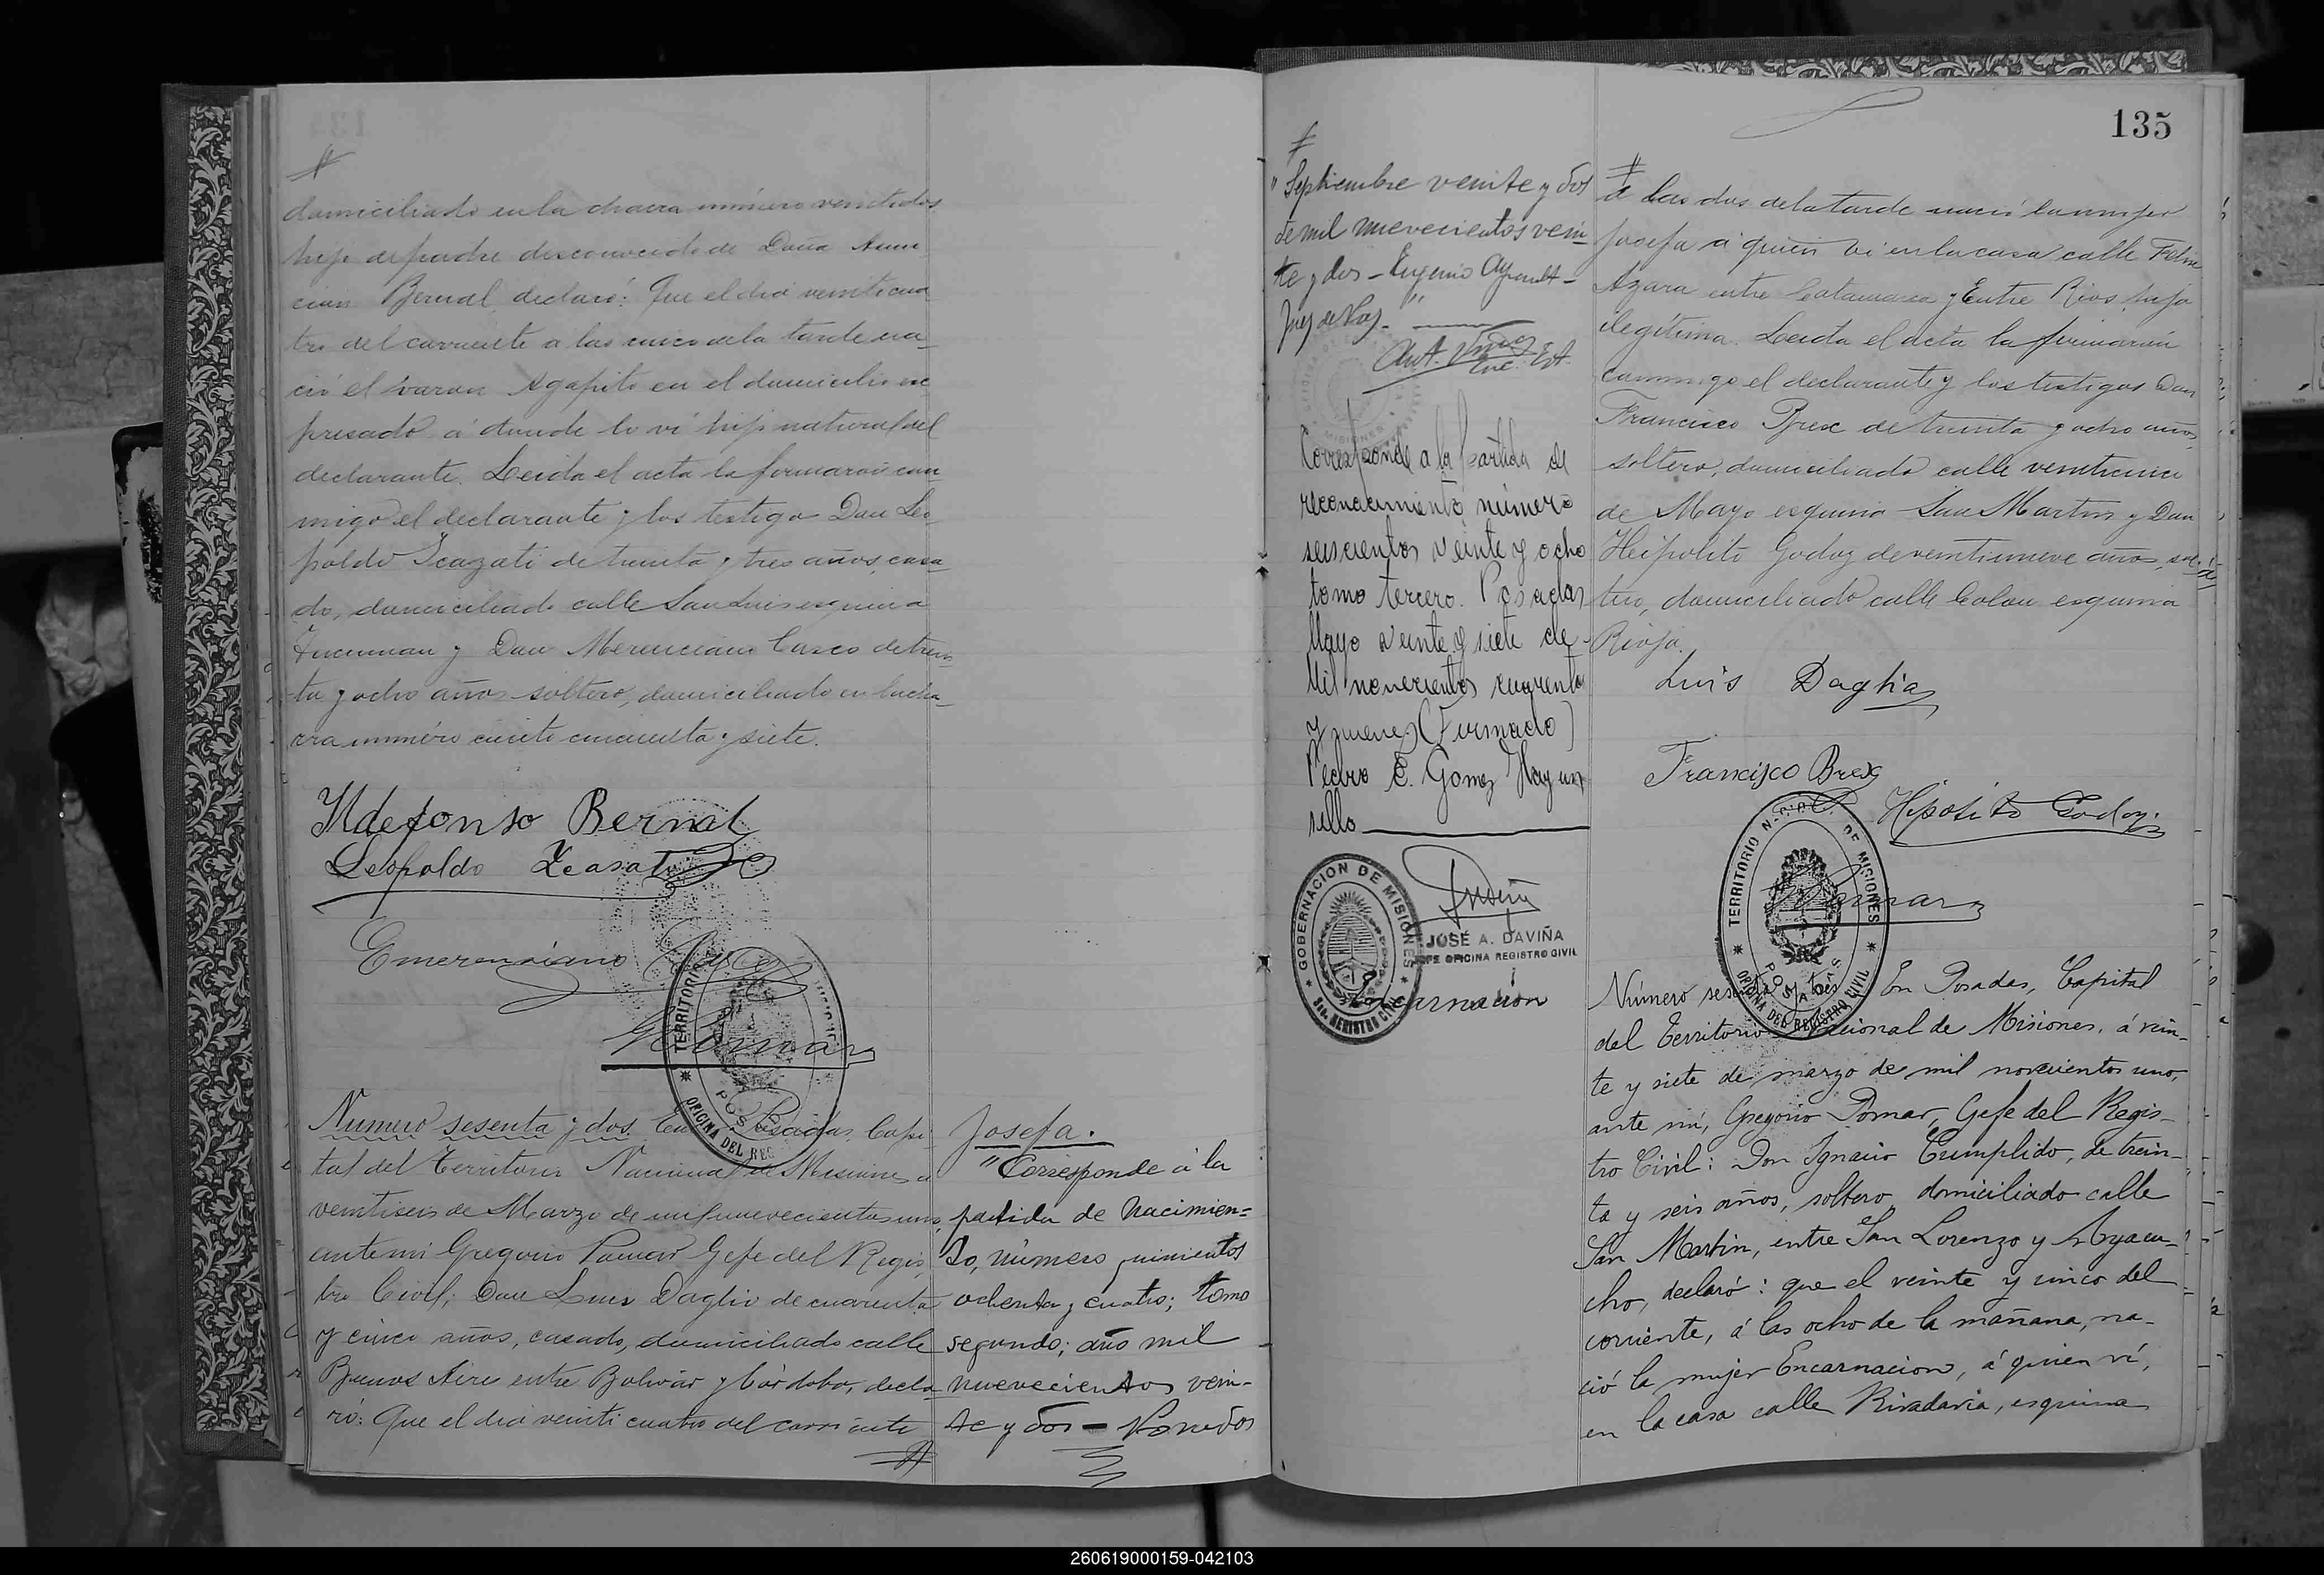 domiciliado en la chacra número veintidos
hijo de padre desconocido de Doña Asun
cion Bernal, declaró: Que el dia veinticua
tro del corriente a las cinco de la tarde na_
ció el varon Agapito en el domicilio ex
presado á donde lo ví hijo natural del
declarante. Leida el acta la firmaron con
migo el declarante y los testigos Don Leo
poldo de treinta y tres años, casa_
do, domiciliado calle San Luis esquina
Tucuman y Don Merenciano Casco de trein_
ta y ocho años soltero, domiciliado en la cha_
cra número ciento cincuenta y siete.
Ildefonso Bernal
Leopoldo
Emerenciano
Numero sesenta y dos En Posadas, Capi
tal del Territorio Nacional de Misiones a
veintiseis de Marzo de mil nuevecientos uno,
ante mi Gregorio Pomar Gefe del Regis_
tro Civil; Don Luis Daglio de cuarenta
y cinco años, casado, domiciliado calle
Buenos Aires entre Bolivar y Córdoba, decla_
ró: Que el dia veinti cuatro del corriente
Josefa.
"Corresponde á la
partida de Nacimien=
to, número quinientos
ochenta y cuatro; tomo
segundo; año mil
nuevecientos vein-
te y dos -
135
"Septiembre veinte y dos
de mil nuevecientos vein-
te y dos - Eugenio
Juez de Paz. "
Corresponde a la partida de
reconocimiento número
seiscientos veinte y ocho
tomo tercero. Posadas
Mayo veinte y siete de
Mil novecientos cuarenta
y nueve (Firmado)
Pedro E. Gomez Hay un
sello
GOBERNACION DE MISIONES
JOSÉ A. DAVIÑA
JEFE OFICINA REGISTRO CIVIL
Encarnación
á las dos de la tarde nació la mujer
Josefa á quien ví en la casa calle Felix
Azara entre Catamarca y Entre Rios, hija
ilegítima. Leida el acta la firmaron
conmigo el declarante y los testigos Don
Francisco Brex de treinta y ocho años,
soltero, domiciliado calle veinticinco
de Mayo esquina San Martin y Don
Heipolito Godoy de veintinueve años, sol
tero, domiciliado calle Colon esquina
Rioja.
Luis Daglio
Francisco Brex
Hipolito Godoy
TERRITORIO N. DE MISIONES
POSADAS
OFICINA DEL REGISTRO CIVIL
Pomar
Número sesenta y tres En Posadas, Capital
del Territorio Nacional de Misiones, á vein-
te y siete de marzo de mil novecientos uno,
ante mi, Gregorio Pomar, Gefe del Regis-
tro Civil: Don Ignacio Cumplido, de trein-
ta y seis años, soltero, domiciliado calle
San Martin, entre San Lorenzo y Ayacu-
cho, declaró: que el veinte y cinco del
corriente, á las ocho de la mañana, na-
ció la mujer Encarnacion, á quien ví,
en la casa calle Rivadavia, esquina
260619000159-042103